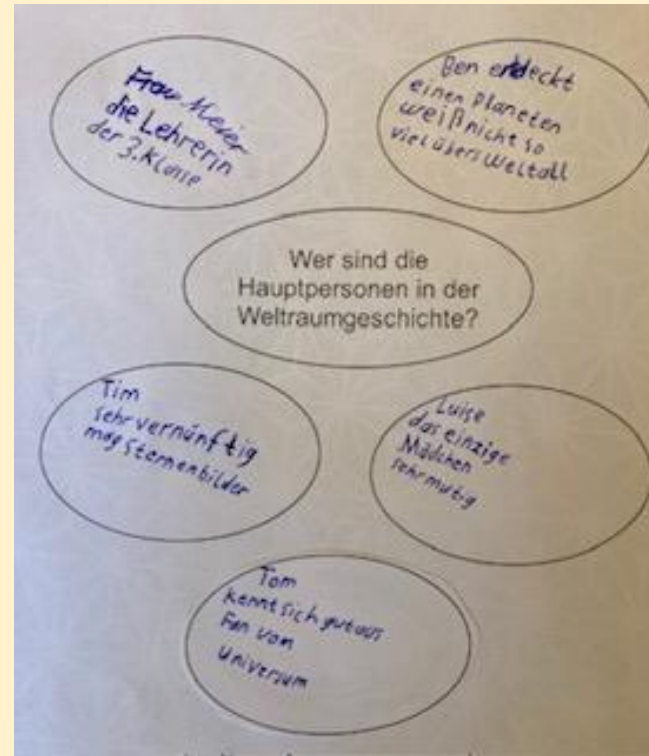 Frau Meier
die Lehrerin
der 3. Klasse
Ben entdeckt
einen Planeten
weiß nicht so
viel übers Weltall
Wer sind die
Hauptpersonen in der
Weltraumgeschichte?
Tim
sehr vernünftig
mag Sternenbilder
Luise
das einzige
Mädchen
sehr mutig
Tom
kennt sich gut aus
Fan vom
Universum